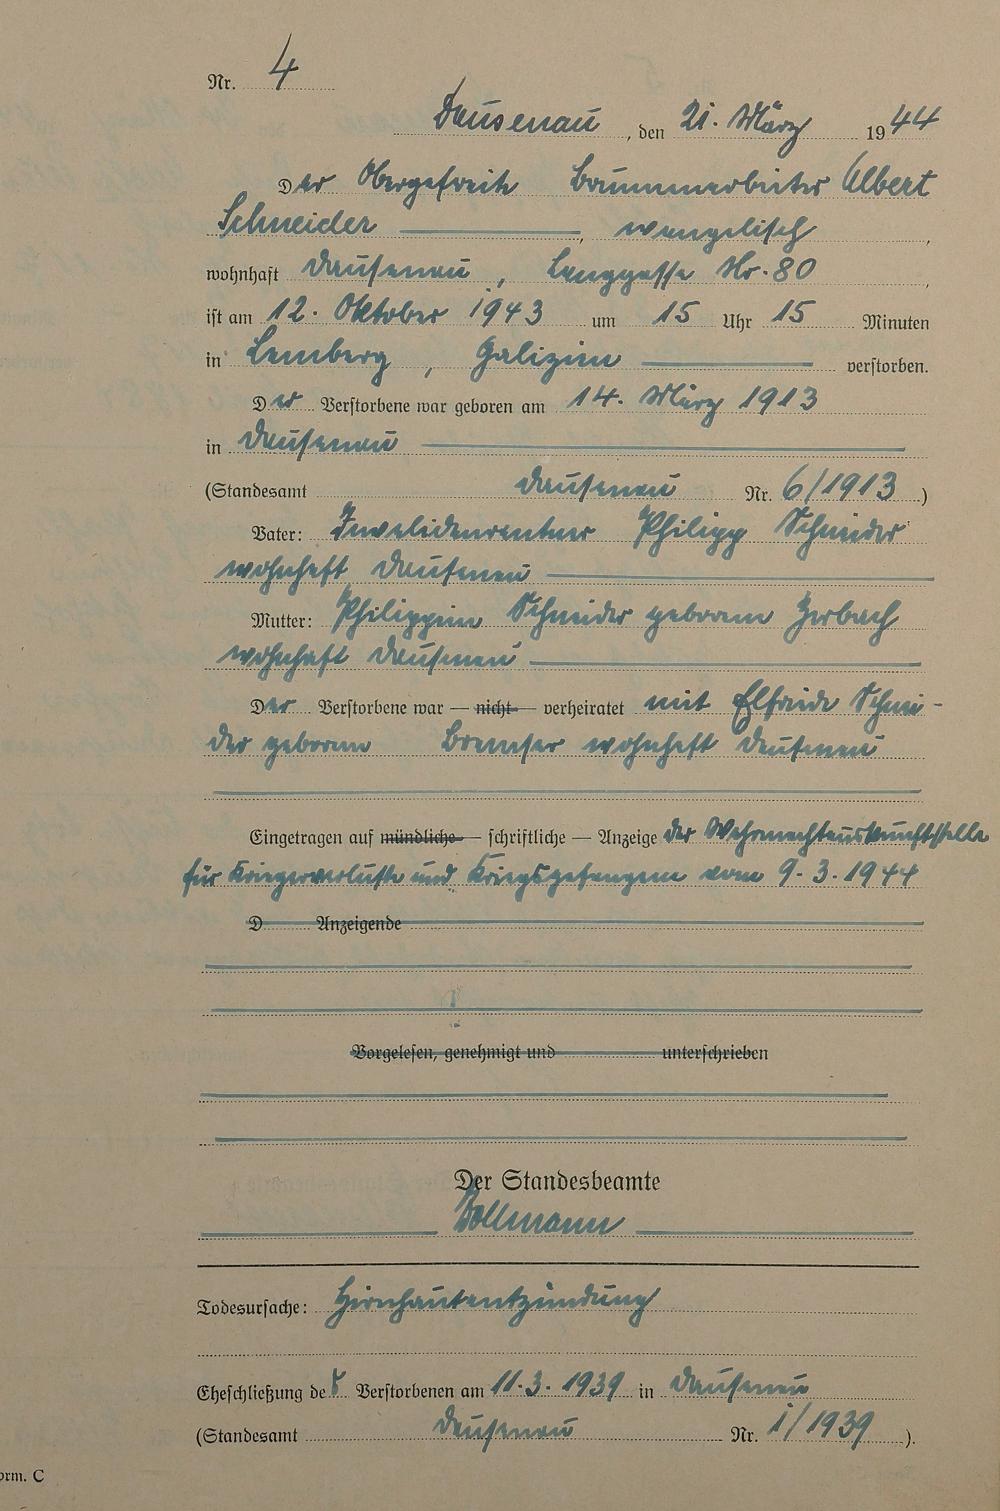 Nr. 4
Dausenau, den 21. März 1944
Der Obergefreite Brunnenarbeiter Albert
Schneider, evangelisch,
wohnhaft Dausenau, Langgasse Nr. 80,
ist am 12. Oktober 1943 um 15 Uhr 15 Minuten
in Lemberg, Galizien verstorben.
Der Verstorbene war geboren am 14. März 1913
in Dausenau
(Standesamt Dausenau Nr. 6/1913)
Vater: Invalidenrentner Philipp Schneider
wohnhaft Dausenau
Mutter: Philippine Schneider geborene Zerbach
wohnhaft Dausenau
Der Verstorbene war — nicht — verheiratet mit Elfriede Schnei-
der geborene Bremser wohnhaft Dausenau
Eingetragen auf mündliche — schriftliche — Anzeige der Wehrmachtauskunftstelle
für Kriegerverluste und Kriegsgefangene vom 9.3.1944
D Anzeigende
Vorgelesen, genehmigt und unterschrieben
Der Standesbeamte
Todesursache: Hirnhautentzündung
Eheschließung des Verstorbenen am 11.3.1939 in Dausenau
(Standesamt Dausenau Nr. 1/1939).
orm. C